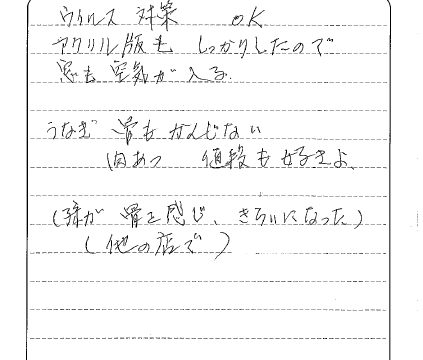 ウイルス 対策 OK
アクリル版も しっかりしたので
窓も 空気が入る.
うなぎ 骨も かんじない
肉あつ 値段も 好きよ、
(孫が 骨を感じ、きらいになった)
(他の店で)